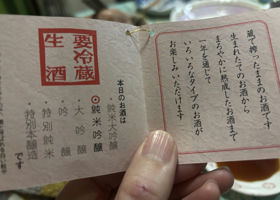 要冷蔵
生酒
本日のお酒は
・純米大吟醸
◎純米吟醸
・大吟醸
・吟醸
・特別純米
・特別本醸造
です
蔵で搾ったままのお酒です
生まれたてのお酒から
まろやかに熟成したお酒まで
一年を通じて
いろいろなタイプのお酒が
お楽しみいただけます